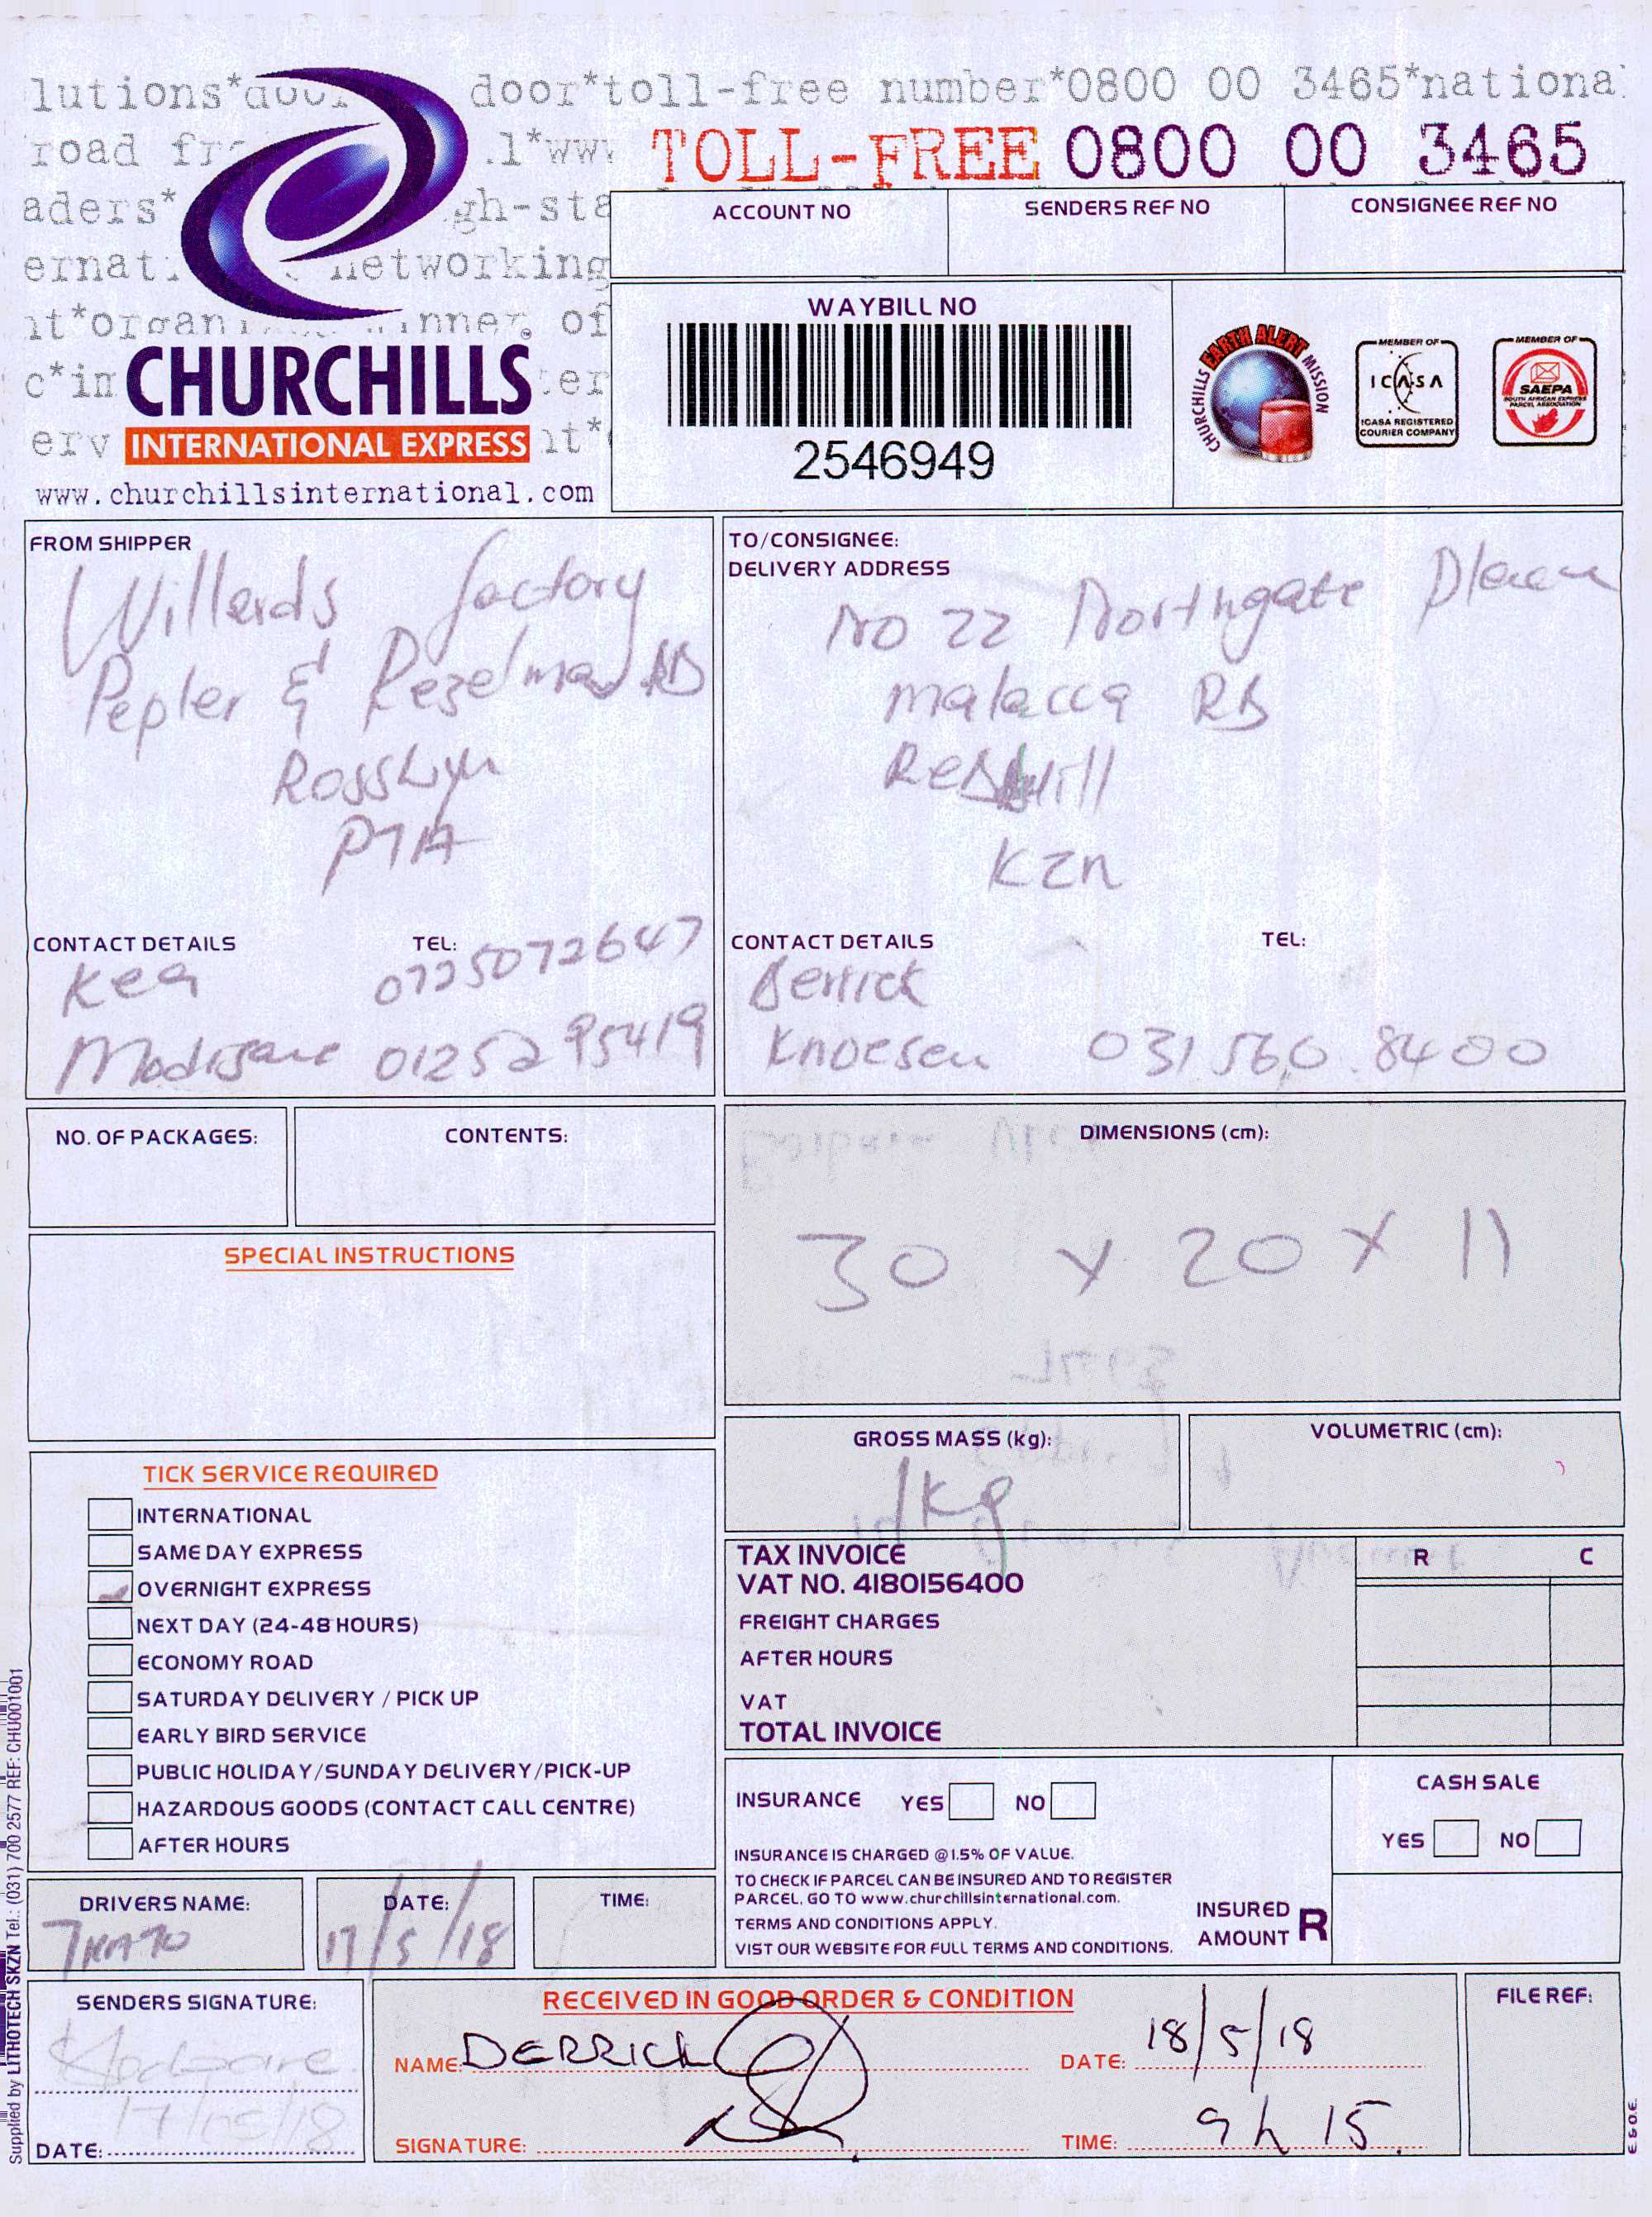 lutions*door door*toll-free number*0800 00 3465*national
road fr .l*www TOLL-FREE 0800 00 3465
aders* gh-sta
ernati networking
nt*organi winner of
c*in ter
erv nt*
CHURCHILLS
INTERNATIONAL EXPRESS
www.churchillsinternational.com
ACCOUNT NO
SENDERS REF NO
CONSIGNEE REF NO
WAYBILL NO
2546949
CHURCHILLS EARTH ALERT MISSION
MEMBER OF
ICASA
ICASA REGISTERED
COURIER COMPANY
MEMBER OF
SAEPA
SOUTH AFRICAN EXPRESS
PARCEL ASSOCIATION
FROM SHIPPER
Willards factory
Pepler & Rezelman RD
Rosslyn
PTA
CONTACT DETAILS TEL:
Kea 0725072647
Modisane 0125295419
TO/CONSIGNEE:
DELIVERY ADDRESS
NO 22 Northgate
malacca RD
Redhill
KZN
CONTACT DETAILS TEL:
Derrick
Knoesen 031 560 8400
NO. OF PACKAGES:
CONTENTS:
DIMENSIONS (cm):
30 x 20 x 11
SPECIAL INSTRUCTIONS
GROSS MASS (kg):
1kg
VOLUMETRIC (cm):
TICK SERVICE REQUIRED
INTERNATIONAL
SAME DAY EXPRESS
OVERNIGHT EXPRESS
NEXT DAY (24-48 HOURS)
ECONOMY ROAD
SATURDAY DELIVERY / PICK UP
EARLY BIRD SERVICE
PUBLIC HOLIDAY/SUNDAY DELIVERY/PICK-UP
HAZARDOUS GOODS (CONTACT CALL CENTRE)
AFTER HOURS
TAX INVOICE R C
VAT NO. 4180156400
FREIGHT CHARGES
AFTER HOURS
VAT
TOTAL INVOICE
INSURANCE YES NO
INSURANCE IS CHARGED @ 1.5% OF VALUE.
TO CHECK IF PARCEL CAN BE INSURED AND TO REGISTER
PARCEL, GO TO www.churchillsinternational.com.
TERMS AND CONDITIONS APPLY.
VIST OUR WEBSITE FOR FULL TERMS AND CONDITIONS.
INSURED
AMOUNT R
CASH SALE
YES NO
DRIVERS NAME:
DATE:
17/5/18
TIME:
SENDERS SIGNATURE:
Modisane
17/05/18
DATE:
RECEIVED IN GOOD ORDER & CONDITION
NAME: DERRICK
DATE: 18/5/18
SIGNATURE:
TIME: 9h15
FILE REF:
E & O.E.
Supplied by LITHOTECH SKZN Tel.: (031) 700 2577 REF: CHU001001